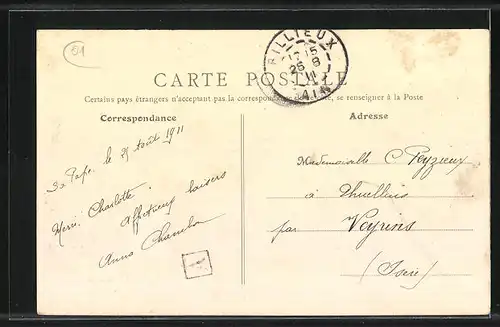 01
RILLIEUX
17 15
26 8
11
AIN
CARTE POSTALE
Certains pays étrangers n'acceptant pas la correspondance se renseigner à la Poste
Correspondance
Adresse
le 25 août 1911
Merci, Charlotte.
Affectueux baisers
Anna
Mademoiselle C. Peyzieux
à Thuellins
par Veyrins
(Isère)